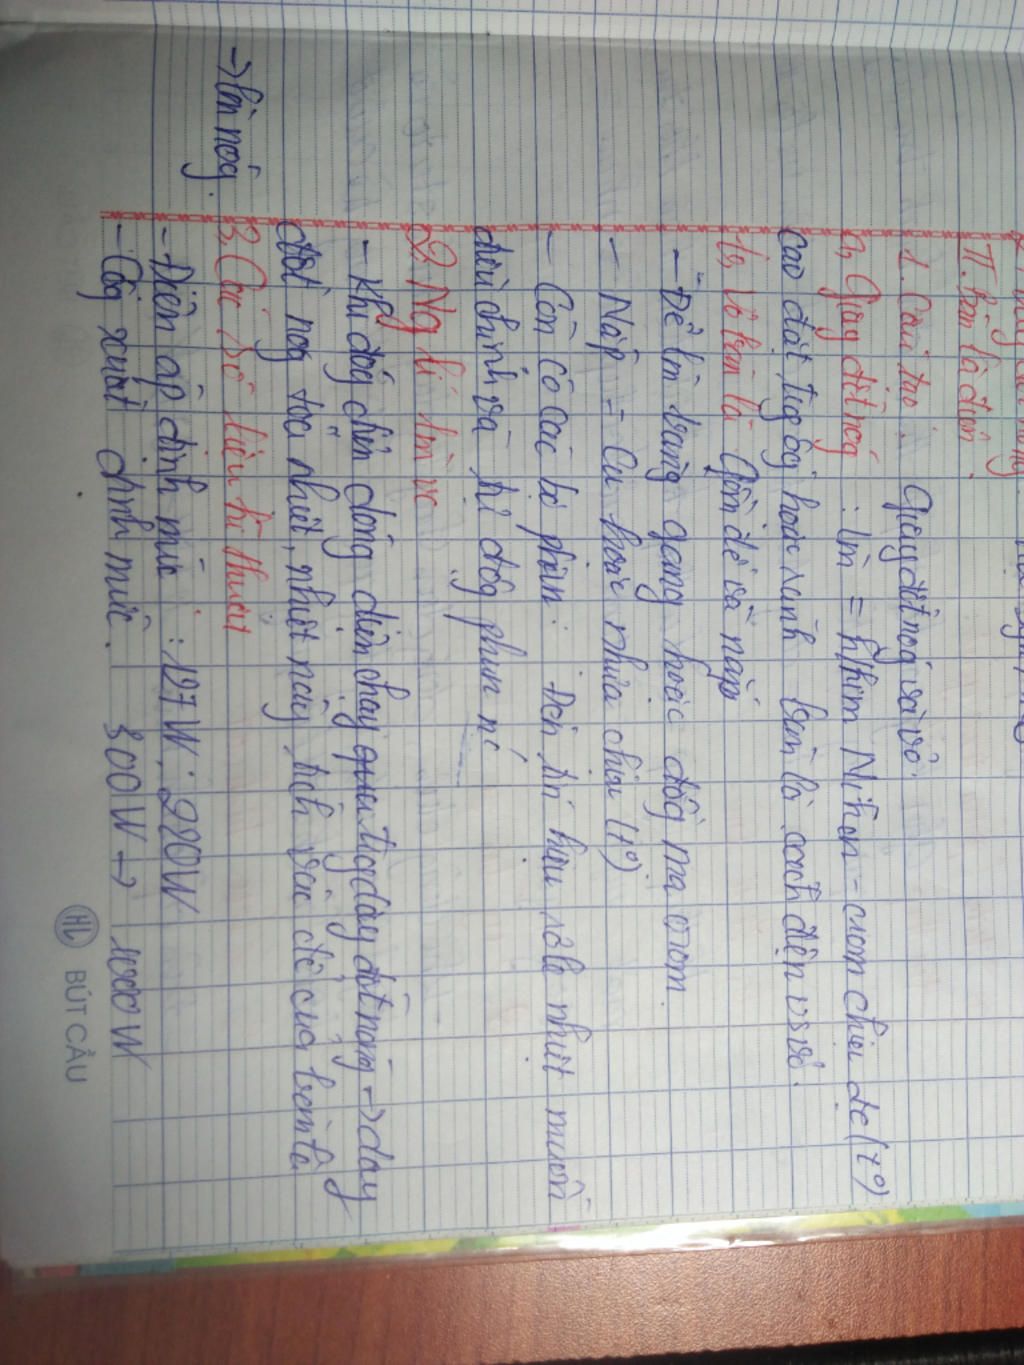 II. Bàn là điện
1. Cấu tạo: Giây đốt nóg và vỏ.
a, Giây đốt nóg: làm = hkim Niken - crom chịu đc (tº)
cao đặt tlog ốg hoặc rãnh bàn là cách điện vs vỏ.
b, Vỏ bàn là Gồm đế và nắp
- Đế làm bằng gang hoặc đồg mạ crom.
- Nắp = Cu hoặc nhựa chịu (tº)
- Còn có các bộ phận: Đèn tín hiệu rơle nhiệt
điều chỉnh và tự độg phun nc
2, Ng lí làm vc
- Khi đóg điện dòng điện chạy tlog dây đốt nóng -> dây
đốt nóg toả nhiệt, nhiệt này tích vào đế của bàn là
-> làm nóg.
3, Các số liệu kĩ thuật
- Điện áp định mức: 127W; 220W
- Côg xuất định mức. 300W -> 1000W
HL BÚT CẦU